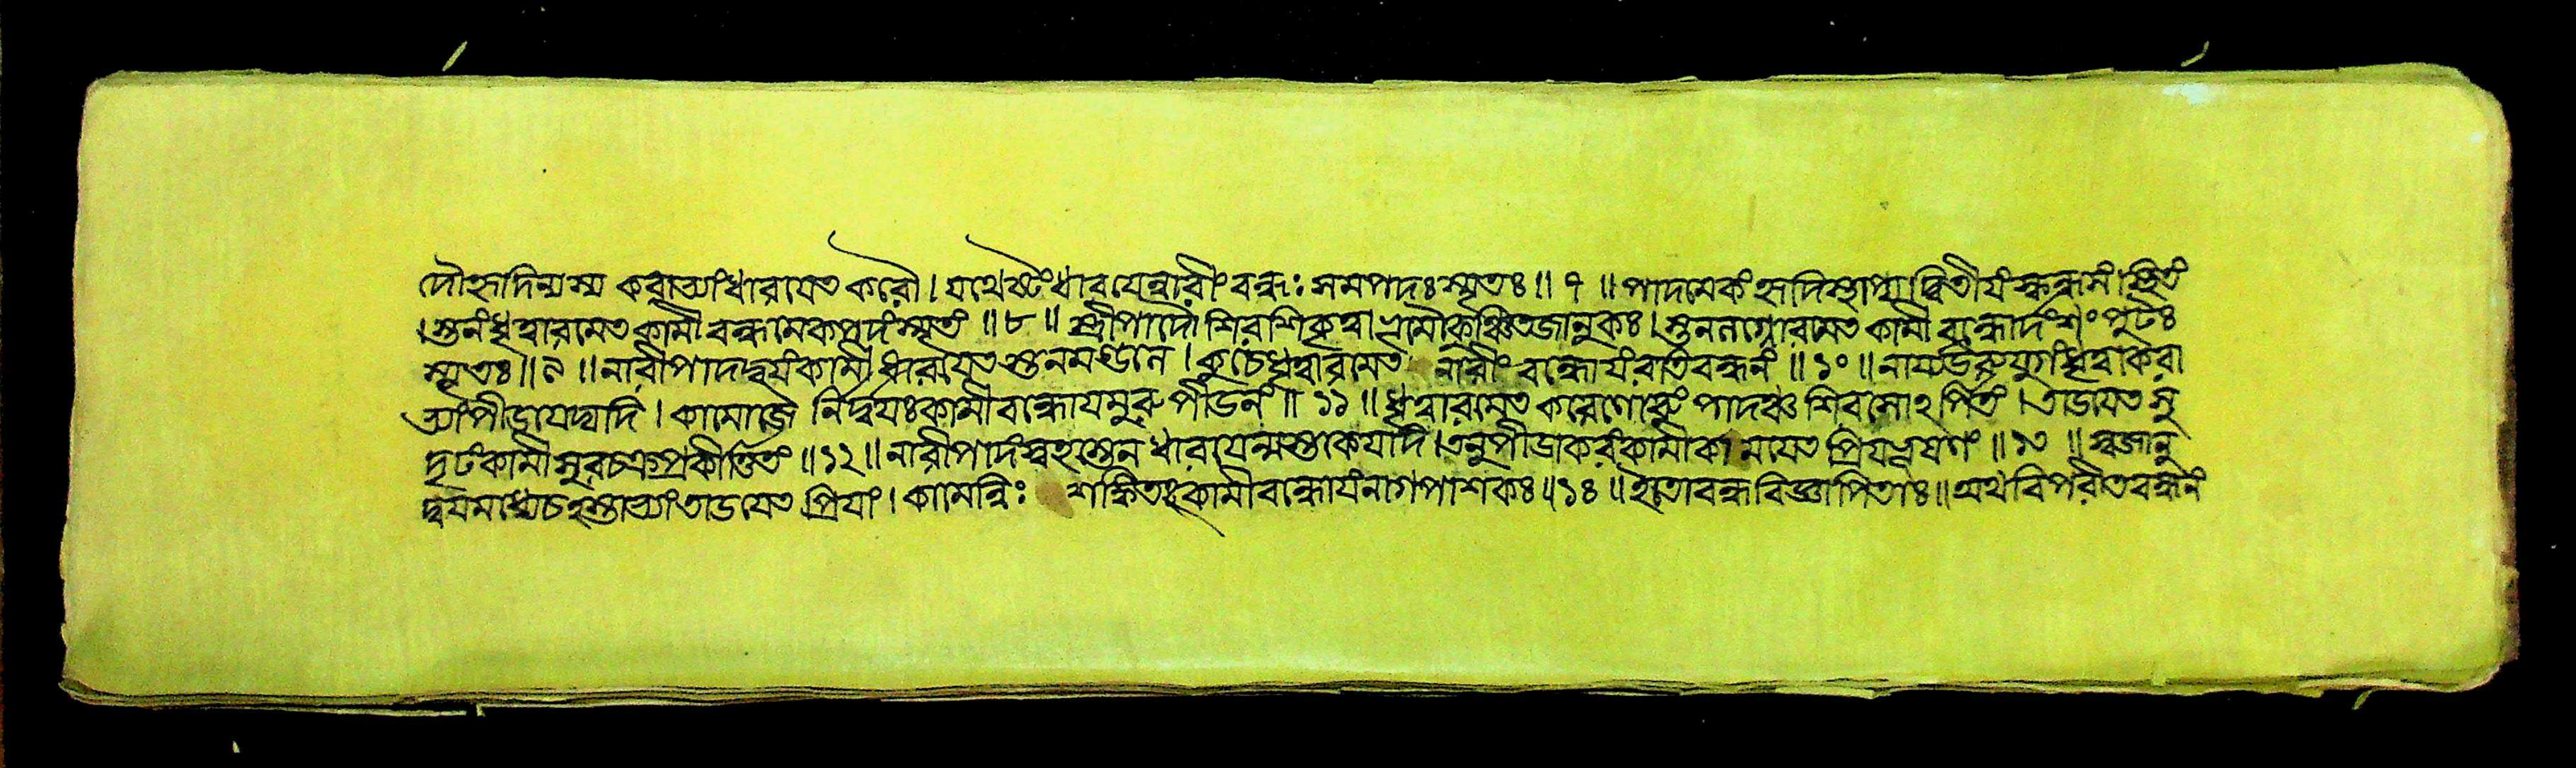 দৌহৃদিন্যস্য করাভ্যাংধারযেত করৌ। যথেষ্টংধারযেন্নারীং বন্ধঃ সমপাদঃ স্মৃতঃ॥ ৭ ॥ পাদমেকং হৃদিস্থাপ্য দ্বিতীযংস্কন্ধমংস্থিতং
।স্তনংধৃত্বারমেত কামী বন্ধমেকপদংস্মৃতং ॥ ৮ ॥ স্ত্রীপাদৌ শিরশিকৃত্বা কামীকুঞ্চিতজানুকঃ। স্তনলগ্নোরমেত কামী বন্ধোর্দং পুটঃ
স্মৃতঃ॥ ৯ ॥ নারীপাদদ্বযংকামী ধারযেত স্তনমণ্ডলে। কুচেধৃত্বারমেত নারীং বন্ধোযংরতিবন্ধনং ॥ ১০ ॥ নার্য্যাউরুযুগংধৃত্বাকরা
ভ্যাংপীডযেদ্যদি। কামোজে নির্দ্দযঃকামীবন্ধোযমুরুপীডনং॥ ১১ ॥ ধৃত্বারমেত করেণোরুং পাদঞ্চ শিরসোঽর্পিতং। তাডযেত সু
দৃঢংকামী সুরচএপ্রকীর্ত্তিতং ॥ ১২ ॥ নারীপাদংস্বহস্তেন ধারযেন্মস্তকেযদি। তনুপীডাকরংকামীকামযেত প্রিযভূষণং ॥ ১৩ ॥ স্বজানু
দ্বযমধ্যেচহস্তাভ্যাংতাডযেত প্রিযাং। কামেন্নিঃ শঙ্কিতঃকামীবন্ধোযংনাগপাশকঃ॥ ১৪ ॥ ইত্যেতাবন্ধবিজ্ঞাপিতাঃ॥ অথবিপরীতবন্ধনং